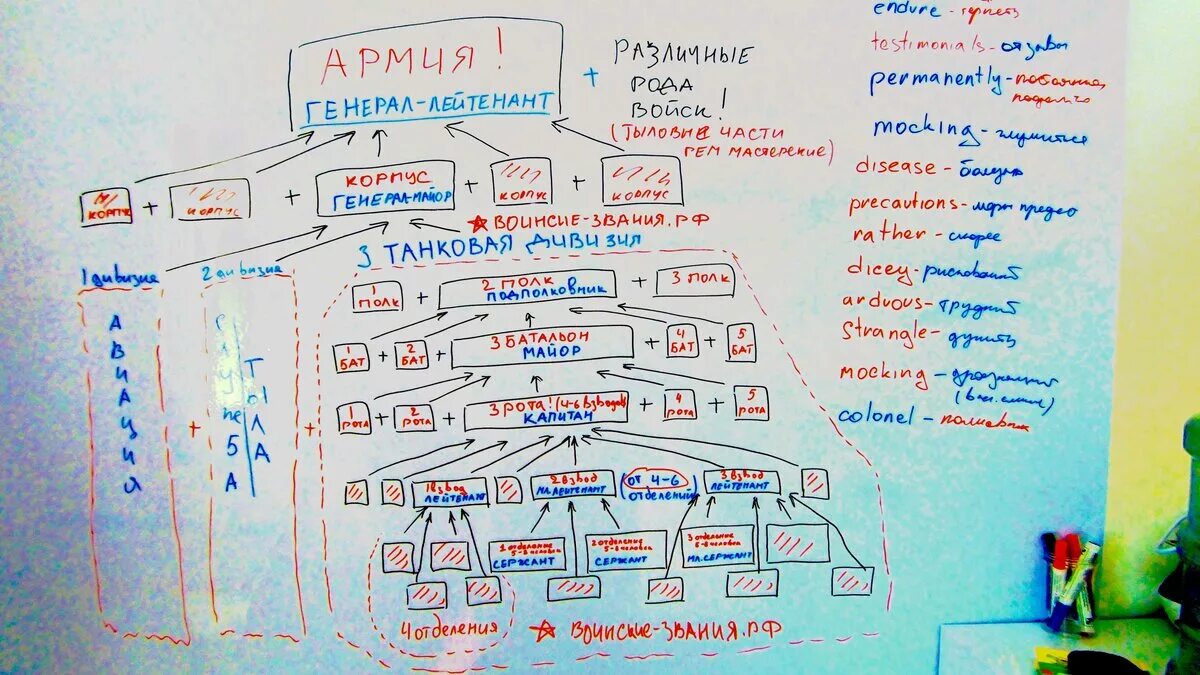 АРМИЯ!
ГЕНЕРАЛ-ЛЕЙТЕНАНТ
+
РАЗЛИЧНЫЕ
РОДА
ВОЙСК!
(ТЫЛОВЫЕ ЧАСТИ
РЕМ
КОРПУС
+
КОРПУС
+
КОРПУС
ГЕНЕРАЛ-МАЙОР
+
КОРПУС
+
КОРПУС
ВОИНСИЕ-ЗВАНИЯ.РФ
1 дивизия
АВИАЦИЯ
+
2 дивизия
ТЫЛА
+
3 ТАНКОВАЯ ДИВИЗИЯ
1 ПОЛК
+
2 ПОЛК
ПОДПОЛКОВНИК
+
3 ПОЛК
1 БАТ
+
2 БАТ
+
3 БАТАЛЬОН
МАЙОР
+
4 БАТ
+
5 БАТ
1 РОТА
+
2 РОТА
+
3 РОТА! (4-6 ВЗВОДОВ)
КАПИТАН
+
4 РОТА
+
5 РОТА
1 взвод
ЛЕЙТЕНАНТ
2 взвод
МЛ.ЛЕЙТЕНАНТ
(ОТ 4-6
ОТДЕЛЕНИЙ)
3 взвод
ЛЕЙТЕНАНТ
1 отделение
5-8 человек
СЕРЖАНТ
2 отделение
5-8 человек
СЕРЖАНТ
3 отделение
5-8 человек
МЛ.СЕРЖАНТ
4 отделения
ВОИНСКИЕ-ЗВАНИЯ.РФ
endure - терпеть
testimonials - отзывы
permanently -
mocking - глумиться
disease - болезнь
precautions - меры предос
rather - скорее
dicey - рискованный
arduous - трудный
strangle - душить
mocking -
colonel - полковник